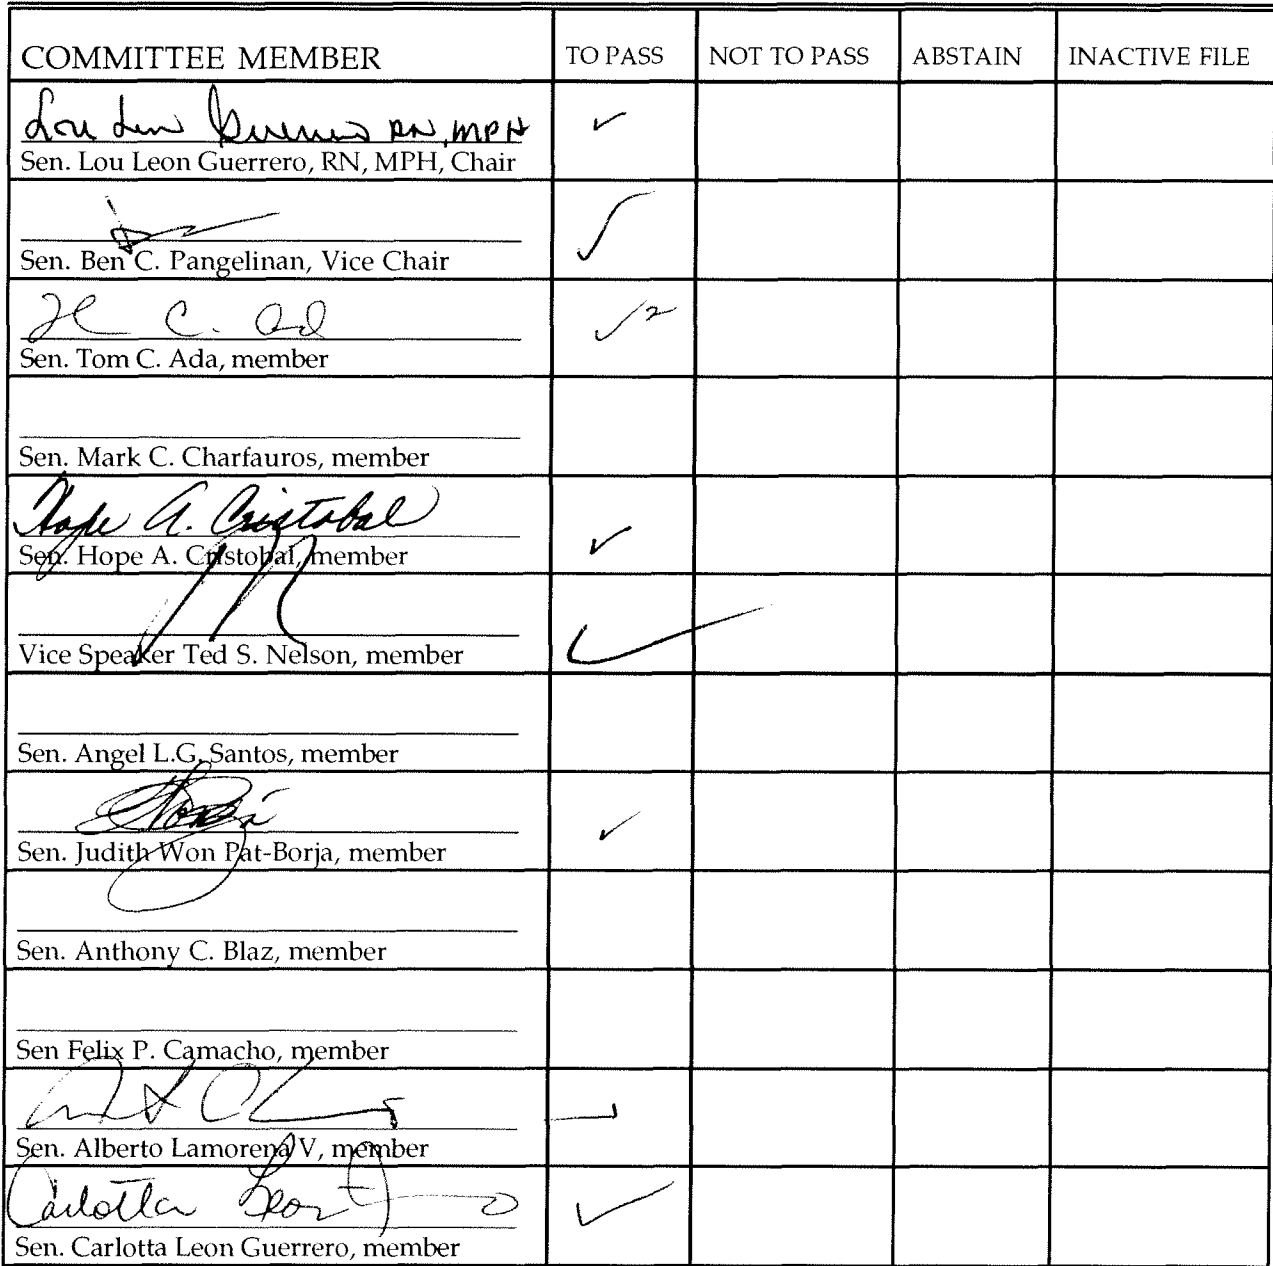 COMMITTEE MEMBER TO PASS NOT TO PASS ABSTAIN INACTIVE FILE
Lou Leon Guerrero RN, MPH ✓
Sen. Lou Leon Guerrero, RN, MPH, Chair
✓
Sen. Ben C. Pangelinan, Vice Chair
✓
Sen. Tom C. Ada, member
Sen. Mark C. Charfauros, member
Hope A. Cristobal
Sen. Hope A. Cristobal, member ✓
Vice Speaker Ted S. Nelson, member ✓
Sen. Angel L.G. Santos, member
✓
Sen. Judith Won Pat-Borja, member
Sen. Anthony C. Blaz, member
Sen Felix P. Camacho, member
Sen. Alberto Lamorena V, member
Carlotta Leon ✓
Sen. Carlotta Leon Guerrero, member